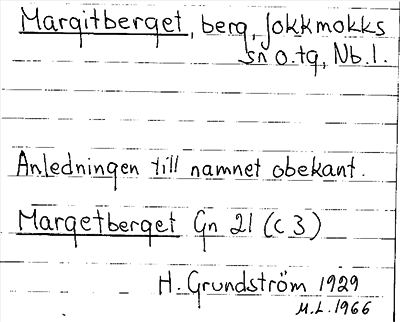 Margitberget, berg, Jokkmokks
sn o. tg, Nb. l.
Anledningen till namnet obekant.
Margetberget Gn 21 (c 3)
H. Grundström 1929
M.L. 1966